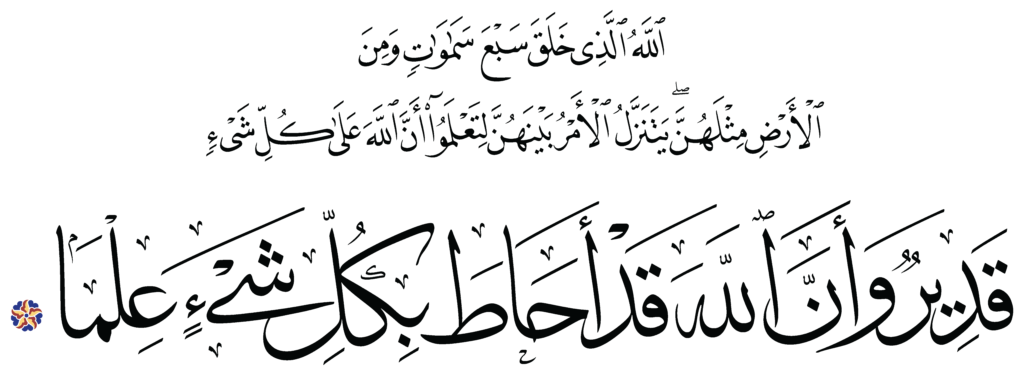 ٱللَّهُ ٱلَّذِى خَلَقَ سَبْعَ سَمَٰوَٰتٍ وَمِنَ
ٱلْأَرْضِ مِثْلَهُنَّ ۖ يَتَنَزَّلُ ٱلْأَمْرُ بَيْنَهُنَّ لِتَعْلَمُوٓا۟ أَنَّ ٱللَّهَ عَلَىٰ كُلِّ شَىْءٍ
قَدِيرٌ وَأَنَّ ٱللَّهَ قَدْ أَحَاطَ بِكُلِّ شَىْءٍ عِلْمًا